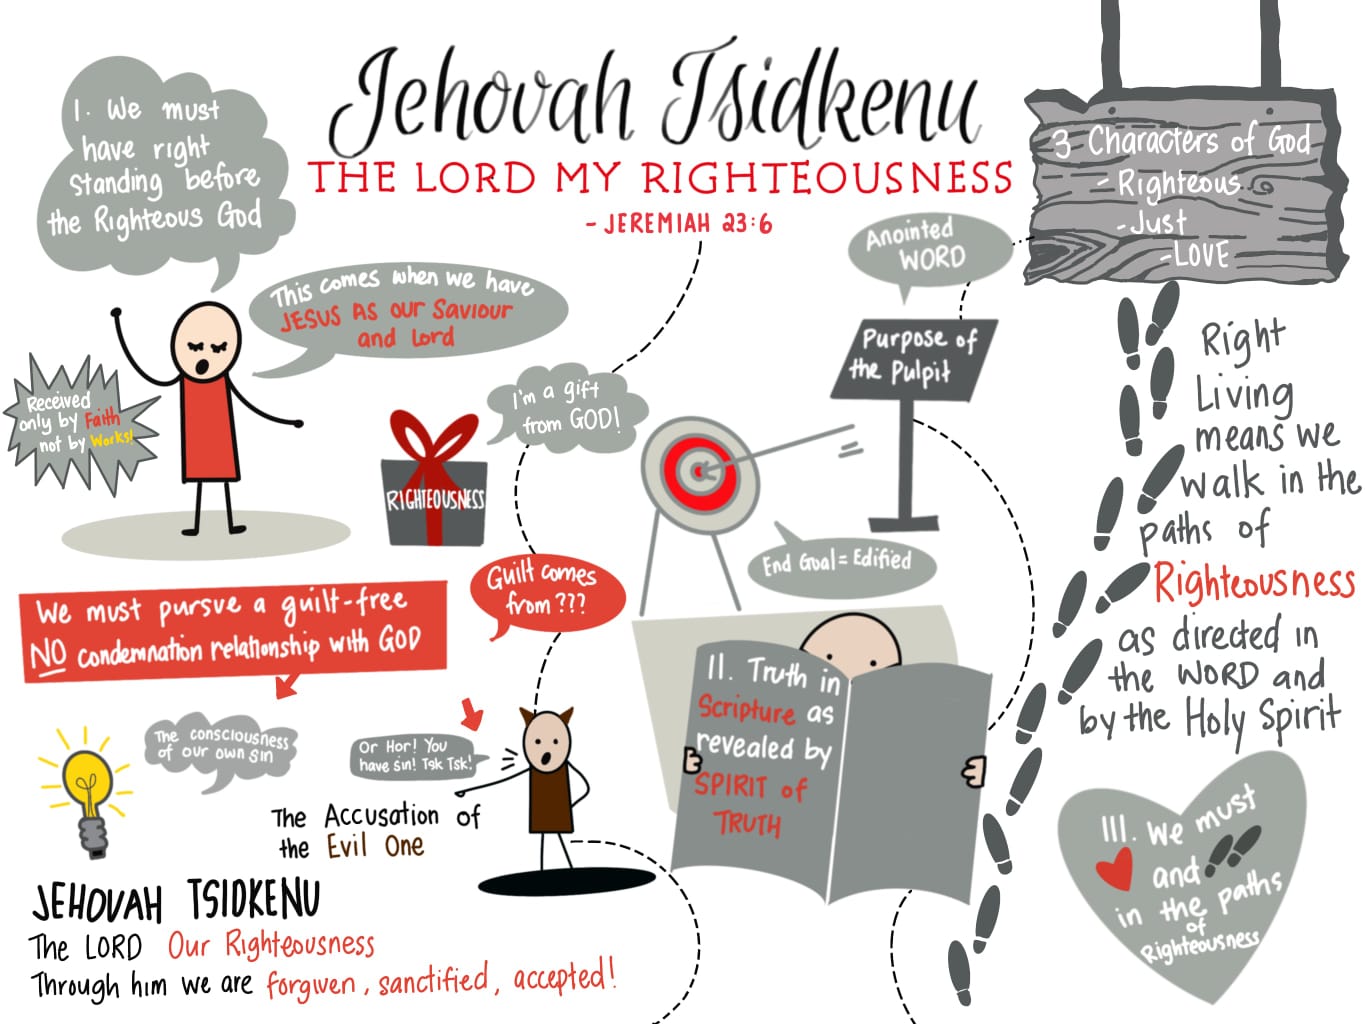 Jehovah Tsidkenu
THE LORD MY RIGHTEOUSNESS
- JEREMIAH 23:6
I. We must
have right
standing before
the Righteous God
This comes when we have
JESUS AS our Saviour
and Lord
Received
only by Faith
not by Works!
I'm a gift
from GOD!
RIGHTEOUSNESS
We must pursue a guilt-free
NO condemnation relationship with GOD
Guilt comes
from ???
The consciousness
of our own sin
Or Hor! You
have sin! Tsk Tsk!
The Accusation of
the Evil One
JEHOVAH TSIDKENU
The LORD Our Righteousness
Through him we are forgiven, sanctified, accepted!
Anointed
WORD
Purpose of
the Pulpit
End Goal = Edified
II. Truth in
Scripture as
revealed by
SPIRIT of
TRUTH
3 Characters of God
- Righteous
- Just
- LOVE
Right
Living
means we
walk in the
paths of
Righteousness
as directed in
the WORD and
by the Holy Spirit
III. We must
and
in the paths
of
Righteousness